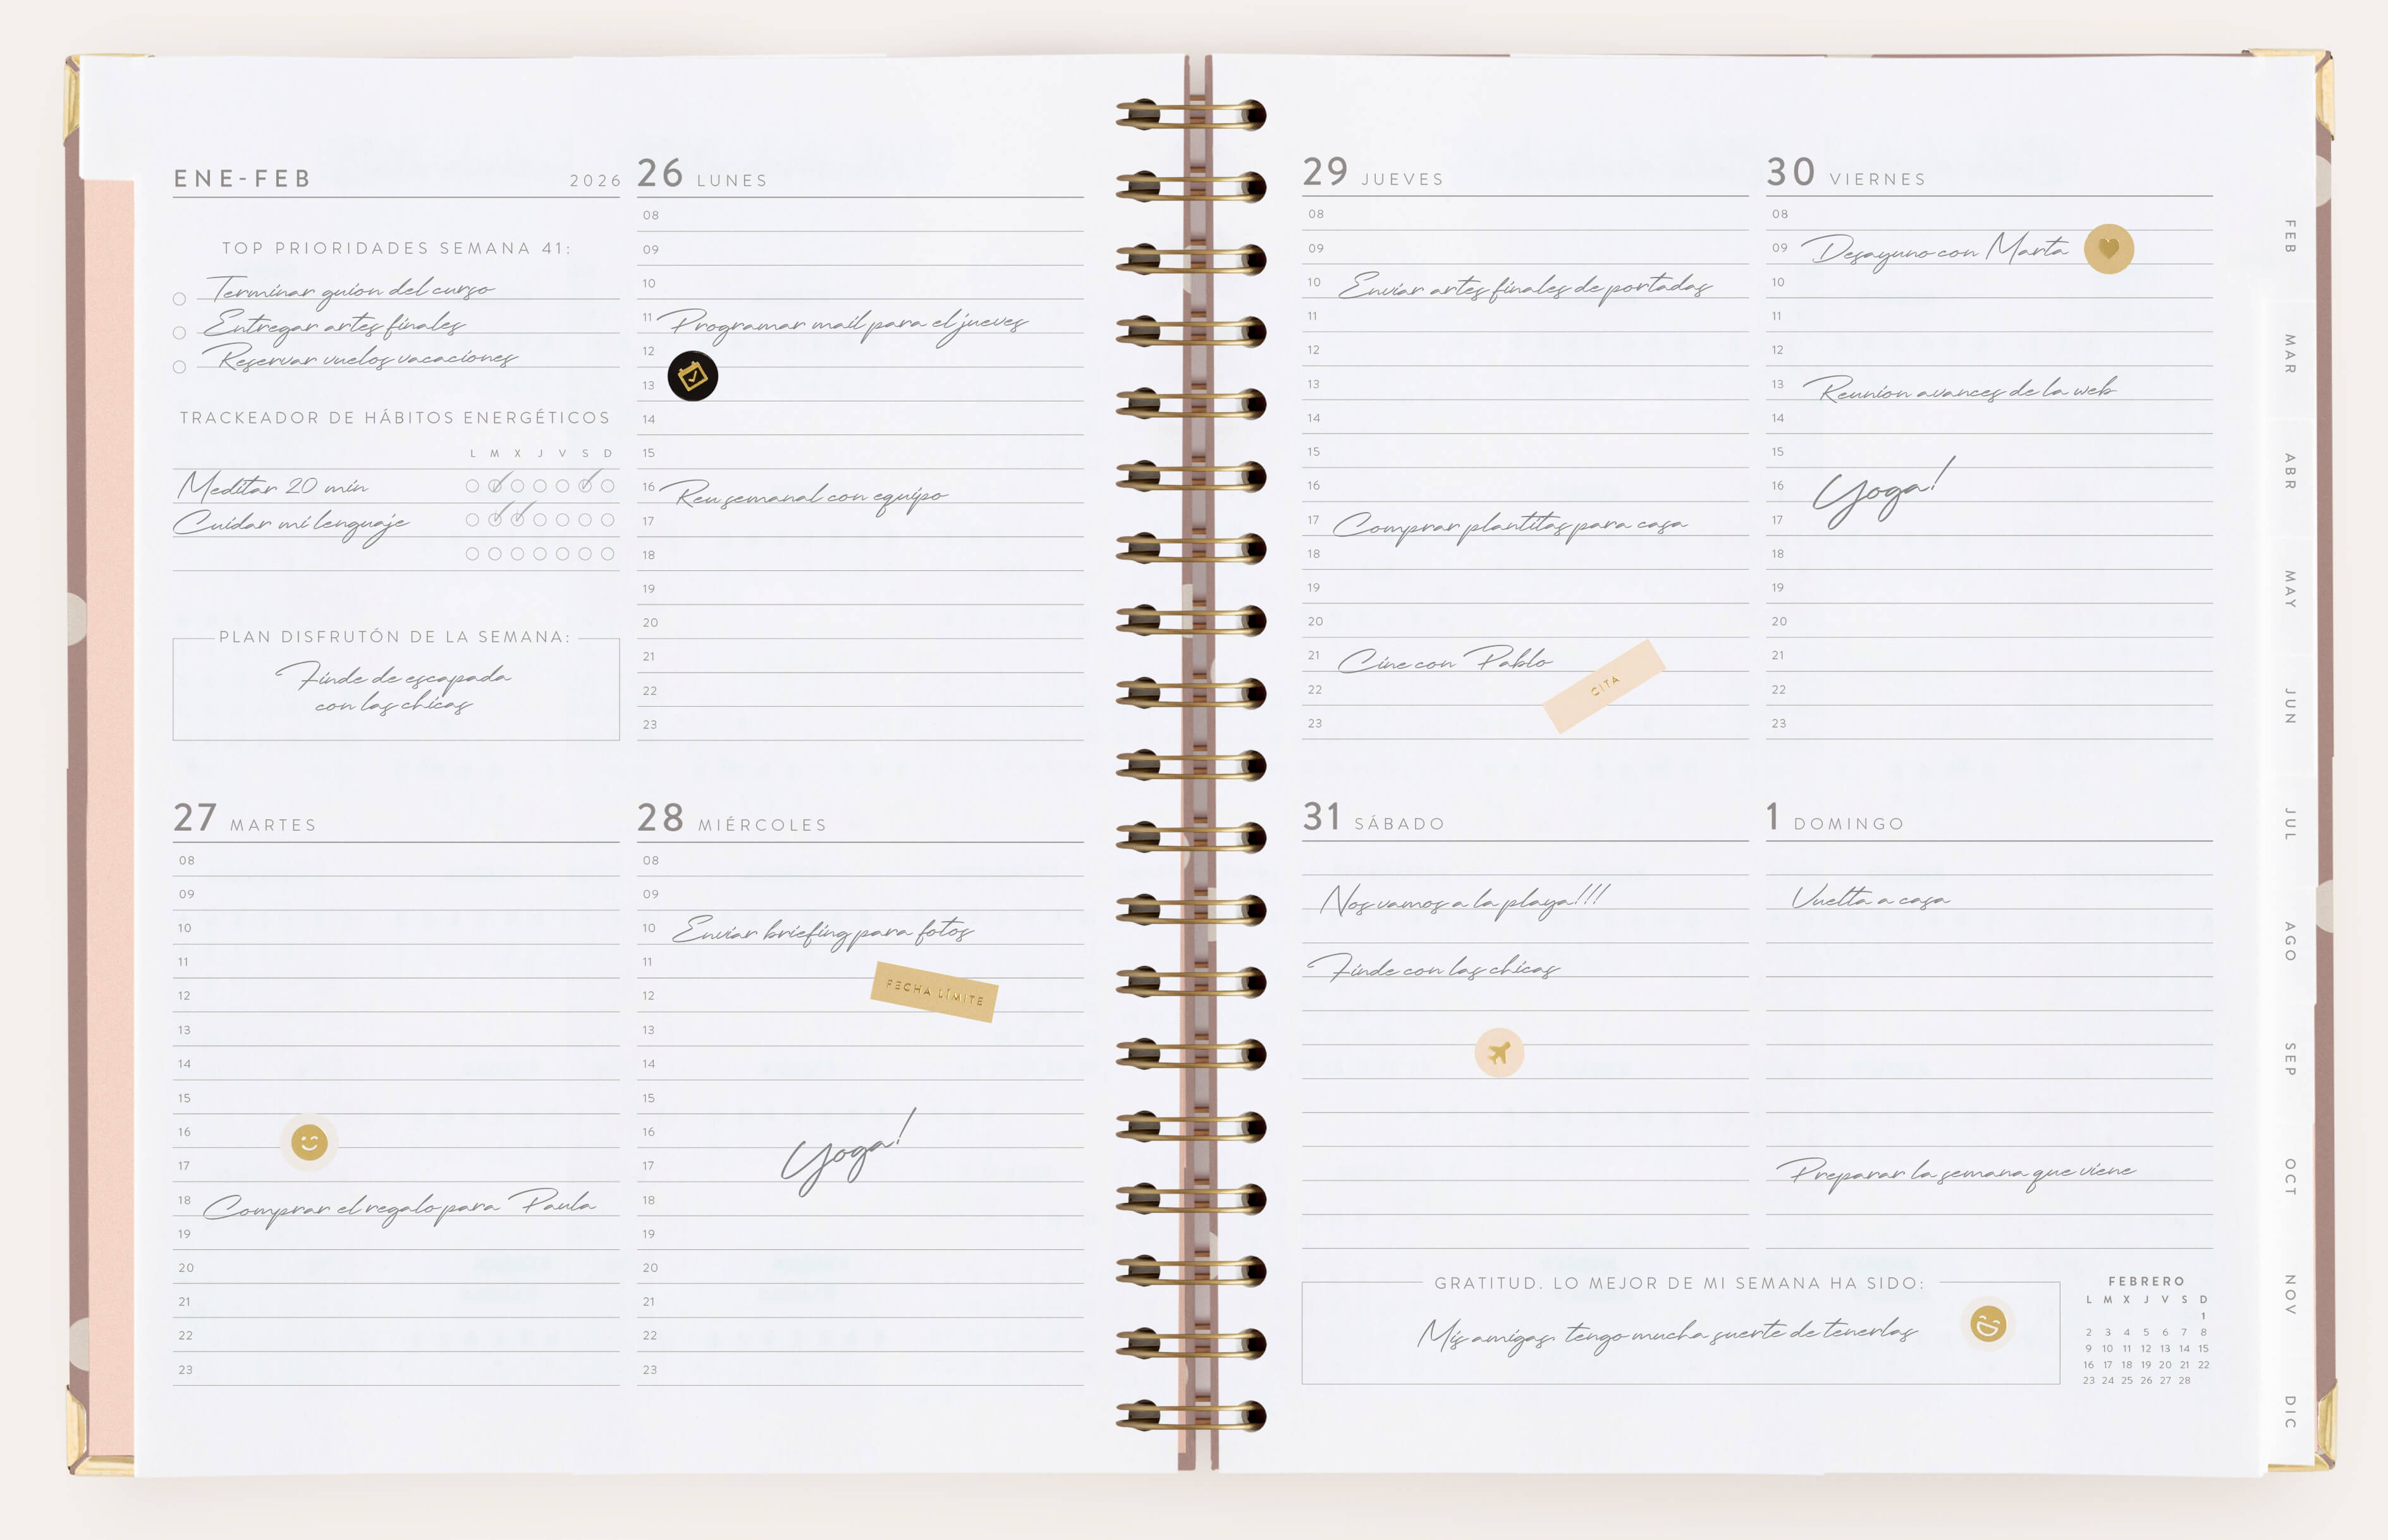 ENE-FEB 2026
TOP PRIORIDADES SEMANA 41:
Terminar guion del curso
Entregar artes finales
Reservar vuelos vacaciones
TRACKEADOR DE HÁBITOS ENERGÉTICOS
L M X J V S D
Meditar 20 min
Cuidar mi lenguaje
PLAN DISFRUTÓN DE LA SEMANA:
Finde de escapada
con las chicas
26 LUNES
08
09
10
11 Programar mail para el jueves
12
13
14
15
16 Reu semanal con equipo
17
18
19
20
21
22
23
27 MARTES
08
09
10
11
12
13
14
15
16
17
18 Comprar el regalo para Paula
19
20
21
22
23
28 MIÉRCOLES
08
09
10 Enviar briefing para fotos
11
FECHA LÍMITE
12
13
14
15
16
Yoga!
17
18
19
20
21
22
23
29 JUEVES
08
09
10 Enviar artes finales de portadas
11
12
13
14
15
16
17 Comprar plantitas para casa
18
19
20
21 Cine con Pablo
22 CITA
23
30 VIERNES
08
09 Desayuno con Marta
10
11
12
13 Reunion avances de la web
14
15
16 Yoga!
17
18
19
20
21
22
23
31 SÁBADO
Nos vamos a la playa!!!
Finde con las chicas
1 DOMINGO
Vuelta a casa
Preparar la semana que viene
GRATITUD. LO MEJOR DE MI SEMANA HA SIDO:
Mis amigas, tengo mucha suerte de tenerlas
FEBRERO
L M X J V S D
1
2 3 4 5 6 7 8
9 10 11 12 13 14 15
16 17 18 19 20 21 22
23 24 25 26 27 28
FEB
MAR
ABR
MAY
JUN
JUL
AGO
SEP
OCT
NOV
DIC